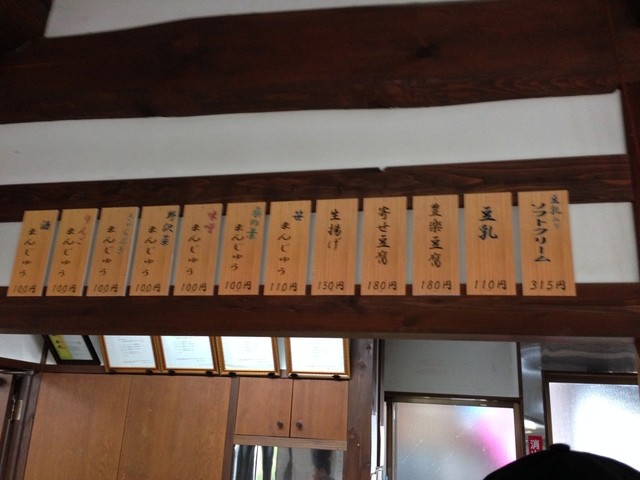 豆乳入り
ソフトクリーム
315円
豆乳
110円
豊楽豆腐
180円
寄せ豆腐
180円
生揚げ
130円
笹
まんじゅう
110円
桑の葉
まんじゅう
100円
味噌
まんじゅう
100円
野沢菜
まんじゅう
100円
まんじゅう
100円
りんご
まんじゅう
100円
酒
まんじゅう
100円
消